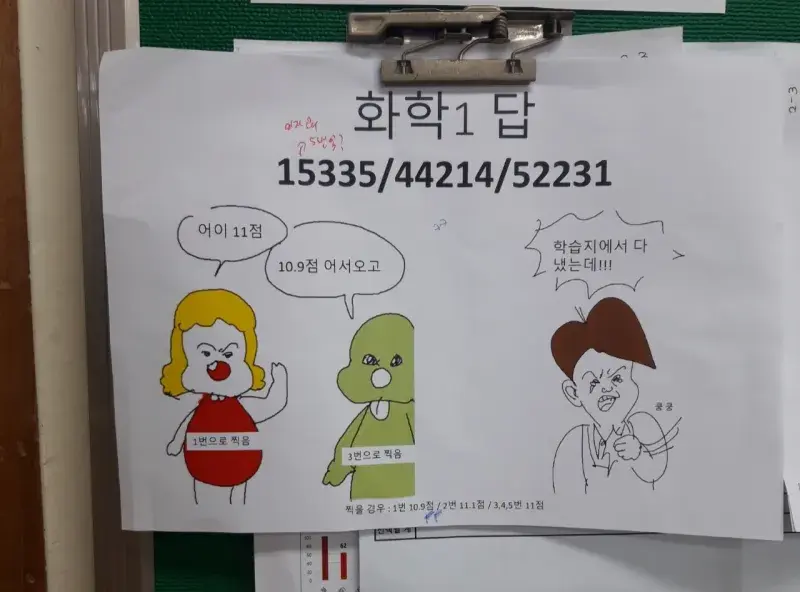 화학1 답
5번임?
15335/44214/52231
어이 11점
10.9점 어서오고
학습지에서 다
냈는데!!!
쿵쿵
1번으로 찍음
3번으로 찍음
찍을 경우 : 1번 10.9점 / 2번 11.1점 / 3,4,5번 11점
2-3
62